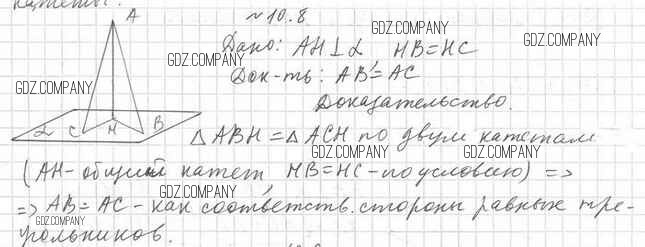 катеты.
№ 10.8
Дано: AH⊥α HB=HC
Док-ть: AB=AC
Доказательство.
△ABH=△ACH по двум катетам
(AH-общий катет, HB=HC-по условию) =>
=> AB=AC-как соответств. стороны равных тре-
угольников.
A
α C H B
GDZ.COMPANY
GDZ.COMPANY
GDZ.COMPANY
GDZ.COMPANY
GDZ.COMPANY
GDZ.COMPANY
GDZ.COMPANY
GDZ.COMPANY
GDZ.COMPANY
GDZ.COMPANY
GDZ.COMPANY